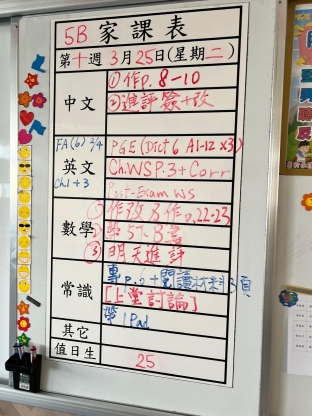 5B 家課表
第十週 3月25日(星期二)
中文
①作p.8-10
②進評簽+改
FA(6) 2/4
Ch.1+3
英文
PGE(Dict 6 A1-12 x3)
Ch.WSP.3+Corr
Post-Exam WS
數學
①作改&作p.22-23
③明天進評
常識
專p.6+閱讀材料3頁
[上堂討論]
帶iPad
其它
值日生
25